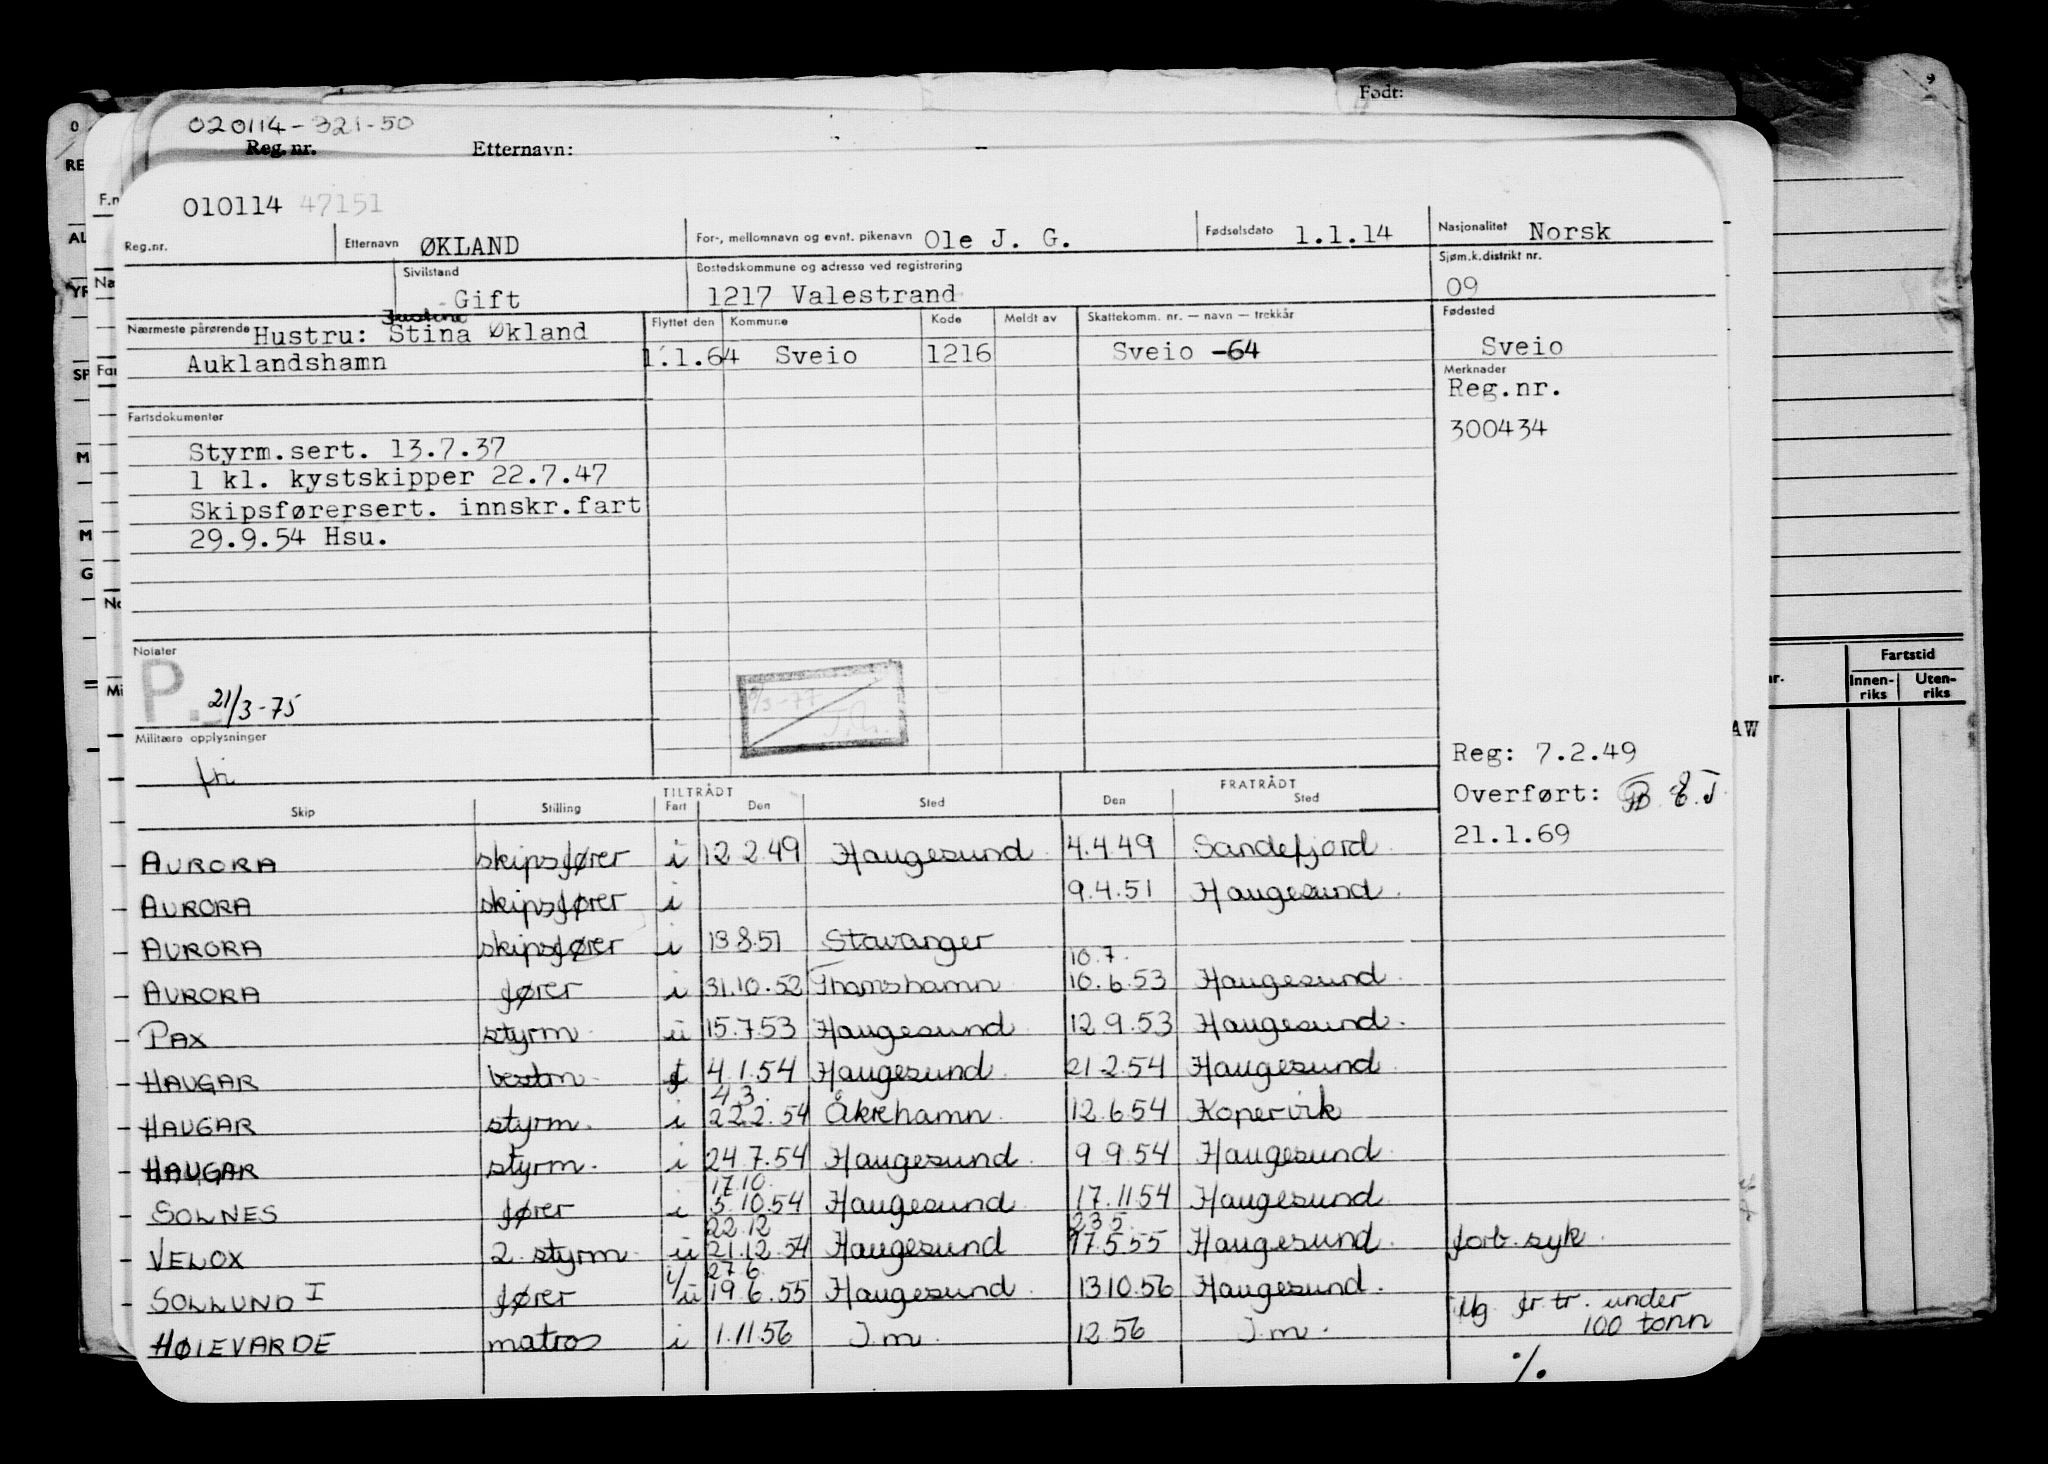 Født:
9
020114-321-50
Reg. nr. Etternavn:
010114 47151
Reg.nr. Etternavn ØKLAND For-, mellomnavn og evnt. pikenavn Ole J. G. Fødselsdato 1.1.14 Nasjonalitet Norsk
Sivilstand Gift Bostedskommune og adresse ved registrering 1217 Valestrand Sjøm.k.distrikt nr. 09
Nærmeste pårørende Hustru: Stina Økland Flyttet den Kommune Kode Meldt av Skattekomm. nr. — navn — trekkår Fødested
Auklandshamn 1.1.64 Sveio 1216 Sveio -64 Sveio
Merknader
Reg.nr.
300434
Fartsdokumenter
Styrm.sert. 13.7.37
1 kl. kystskipper 22.7.47
Skipsførersert. innskr.fart
29.9.54 Hsu.
Notater
P. 21/3-75
Militære opplysninger
fri
Reg: 7.2.49
Overført:
21.1.69
TILTRÅDT FRATRÅDT
Skip Stilling Fart Den Sted Den Sted
AURORA skipsfører i 12 2.49 Haugesund 4.4.49 Sandefjord
AURORA skipsfører i 9.4.51 Haugesund
AURORA skipsfører i 13 8.51 Stavanger
10.7.
AURORA fører i 31.10.52 Thamshamn 10.6.53 Haugesund
PAX styrm. u 15.7.53 Haugesund 12.9.53 Haugesund
HAUGAR bestm. f 4.1.54 Haugesund 21 2.54 Haugesund
4 3.
HAUGAR styrm. i 22.2.54 Åkrehamn 12.6.54 Kopervik
HAUGAR styrm. i 24.7.54 Haugesund 9 9.54 Haugesund
17.10.
SOLNES fører i 5.10.54 Haugesund 17.11.54 Haugesund
22.12 23 5.
VELOX 2. styrm. u 21.12.54 Haugesund 17.5.55 Haugesund forb. syk.
27.6.
SOLLUND I fører i/u 19 6.55 Haugesund 13 10.56 Haugesund.
Mg fr. tr. under
100 tonn
HØIEVARDE matros i 1.11.56 I.m. 12 56 I.m.
%
Fartstid
Innen-riks Uten-riks
AW